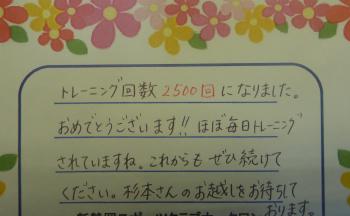 トレーニング回数2500回になりました。
おめでとうございます!! ほぼ毎日トレーニング
されていますね。これからも ぜひ続けて
ください。杉本さんのお越しをお待ちして
おります。